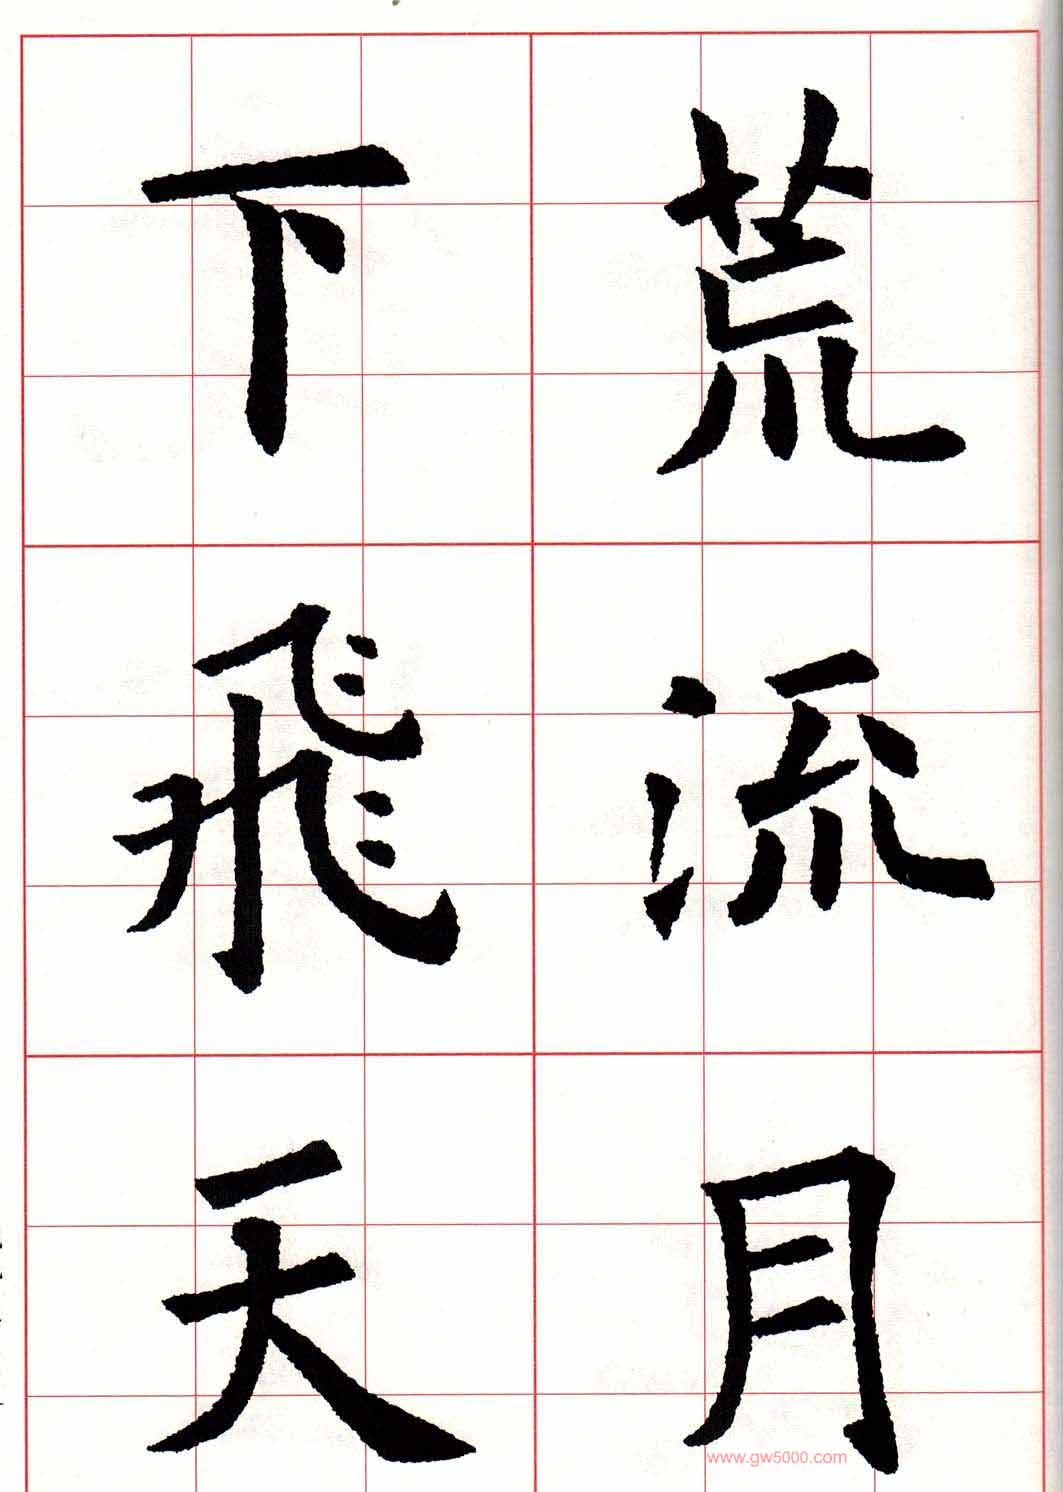 荒流月
下飛天
www.gw5000.com